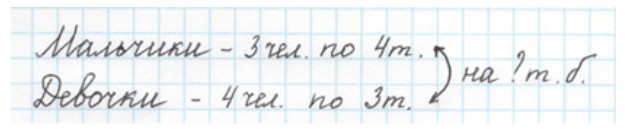 Мальчики - 3 чел. по 4т.
Девочки - 4 чел. по 3т.
на ? т. б.